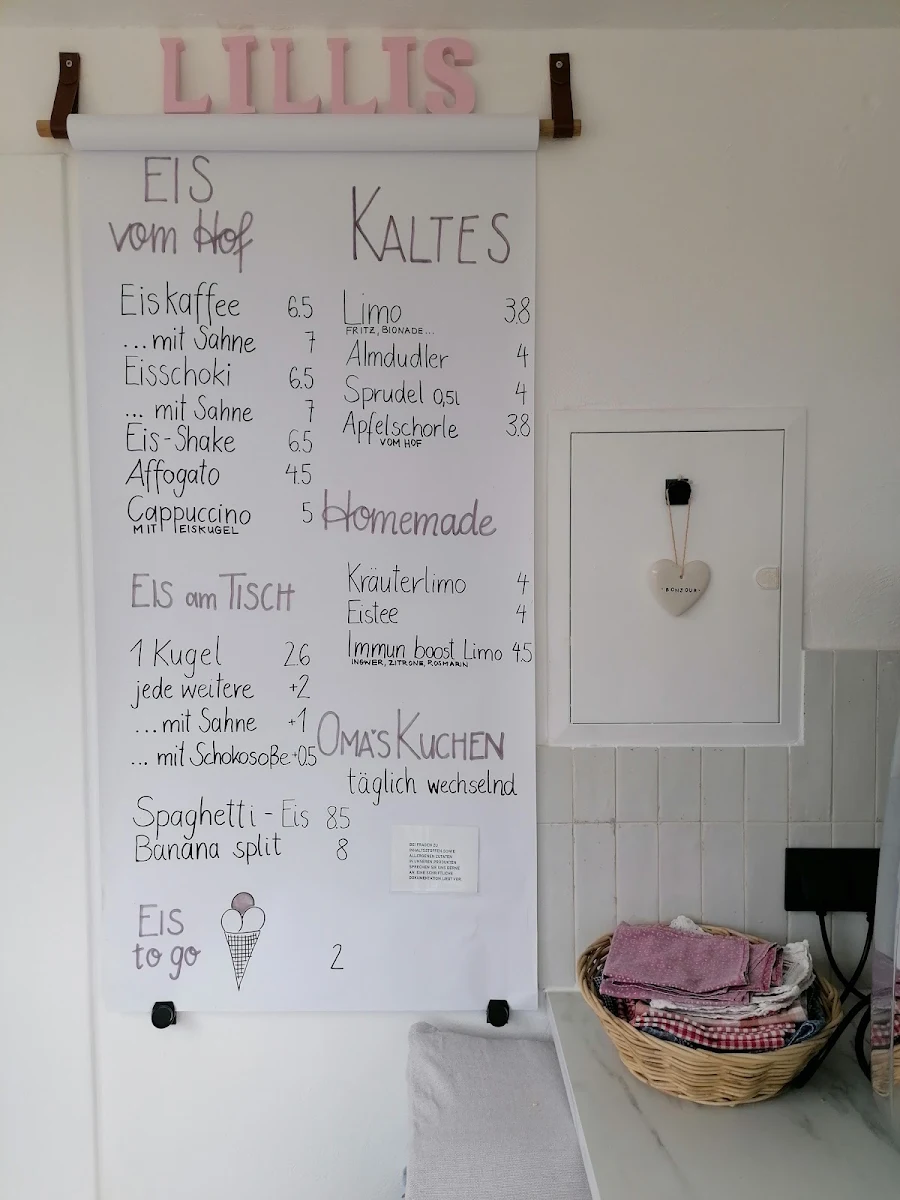 LILLIS
EIS
vom Hof
Eiskaffee 6.5
...mit Sahne 7
Eisschoki 6.5
... mit Sahne 7
Eis-Shake 6.5
Affogato 4.5
Cappuccino 5
MIT EISKUGEL
EIS am TISCH
1 Kugel 2.6
jede weitere +2
...mit Sahne +1
... mit Schokosoße +0.5
Spaghetti-Eis 8.5
Banana split 8
EIS
to go 2
KALTES
Limo 3.8
FRITZ, BIONADE...
Almdudler 4
Sprudel 0,5l 4
Apfelschorle 3.8
VOM HOF
Homemade
Kräuterlimo 4
Eistee 4
Immun boost Limo 4.5
INGWER, ZITRONE, ROSMARIN
OMA'S KUCHEN
täglich wechselnd
BEI FRAGEN ZU
INHALTSSTOFFEN SOWIE
ALLERGENEN ZUTATEN
IN UNSEREN PRODUKTEN
SPRECHEN SIE UNS GERNE
AN. EINE SCHRIFTLICHE
DOKUMENTATION LIEGT VOR.
BONJOUR